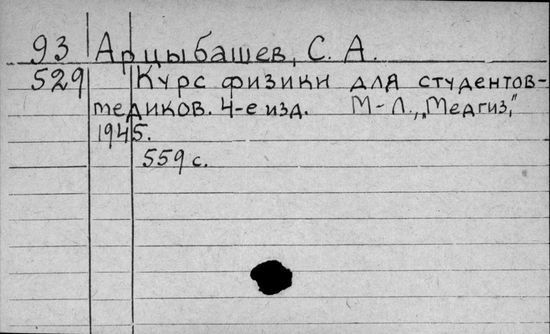 93 Арцыбашев, С. А.
529 Курс физики для студентов-
медиков. 4-е изд. М-Л., „Медгиз,"
1945.
559 с.